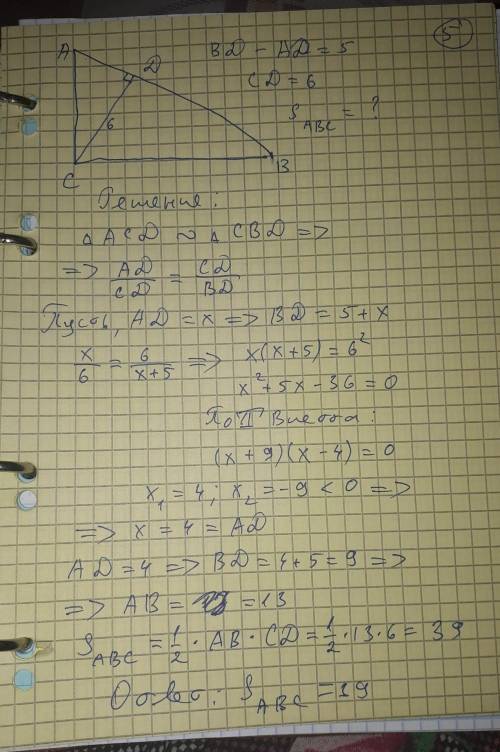 5
A
D
6
C
B
BD - AD = 5
CD = 6
S_ABC = ?
Решение:
△ ACD ~ △ CBD =>
=> AD/CD = CD/BD
Пусть, AD = x => BD = 5 + x
x/6 = 6/(x+5) => x(x+5) = 6²
x² + 5x - 36 = 0
По Т Виетта:
(x + 9)(x - 4) = 0
x₁ = 4; x₂ = -9 < 0 =>
=> x = 4 = AD
AD = 4 => BD = 4 + 5 = 9 =>
=> AB = = 13
S_ABC = 1/2 · AB · CD = 1/2 · 13 · 6 = 39
Ответ: S_ABC = 19